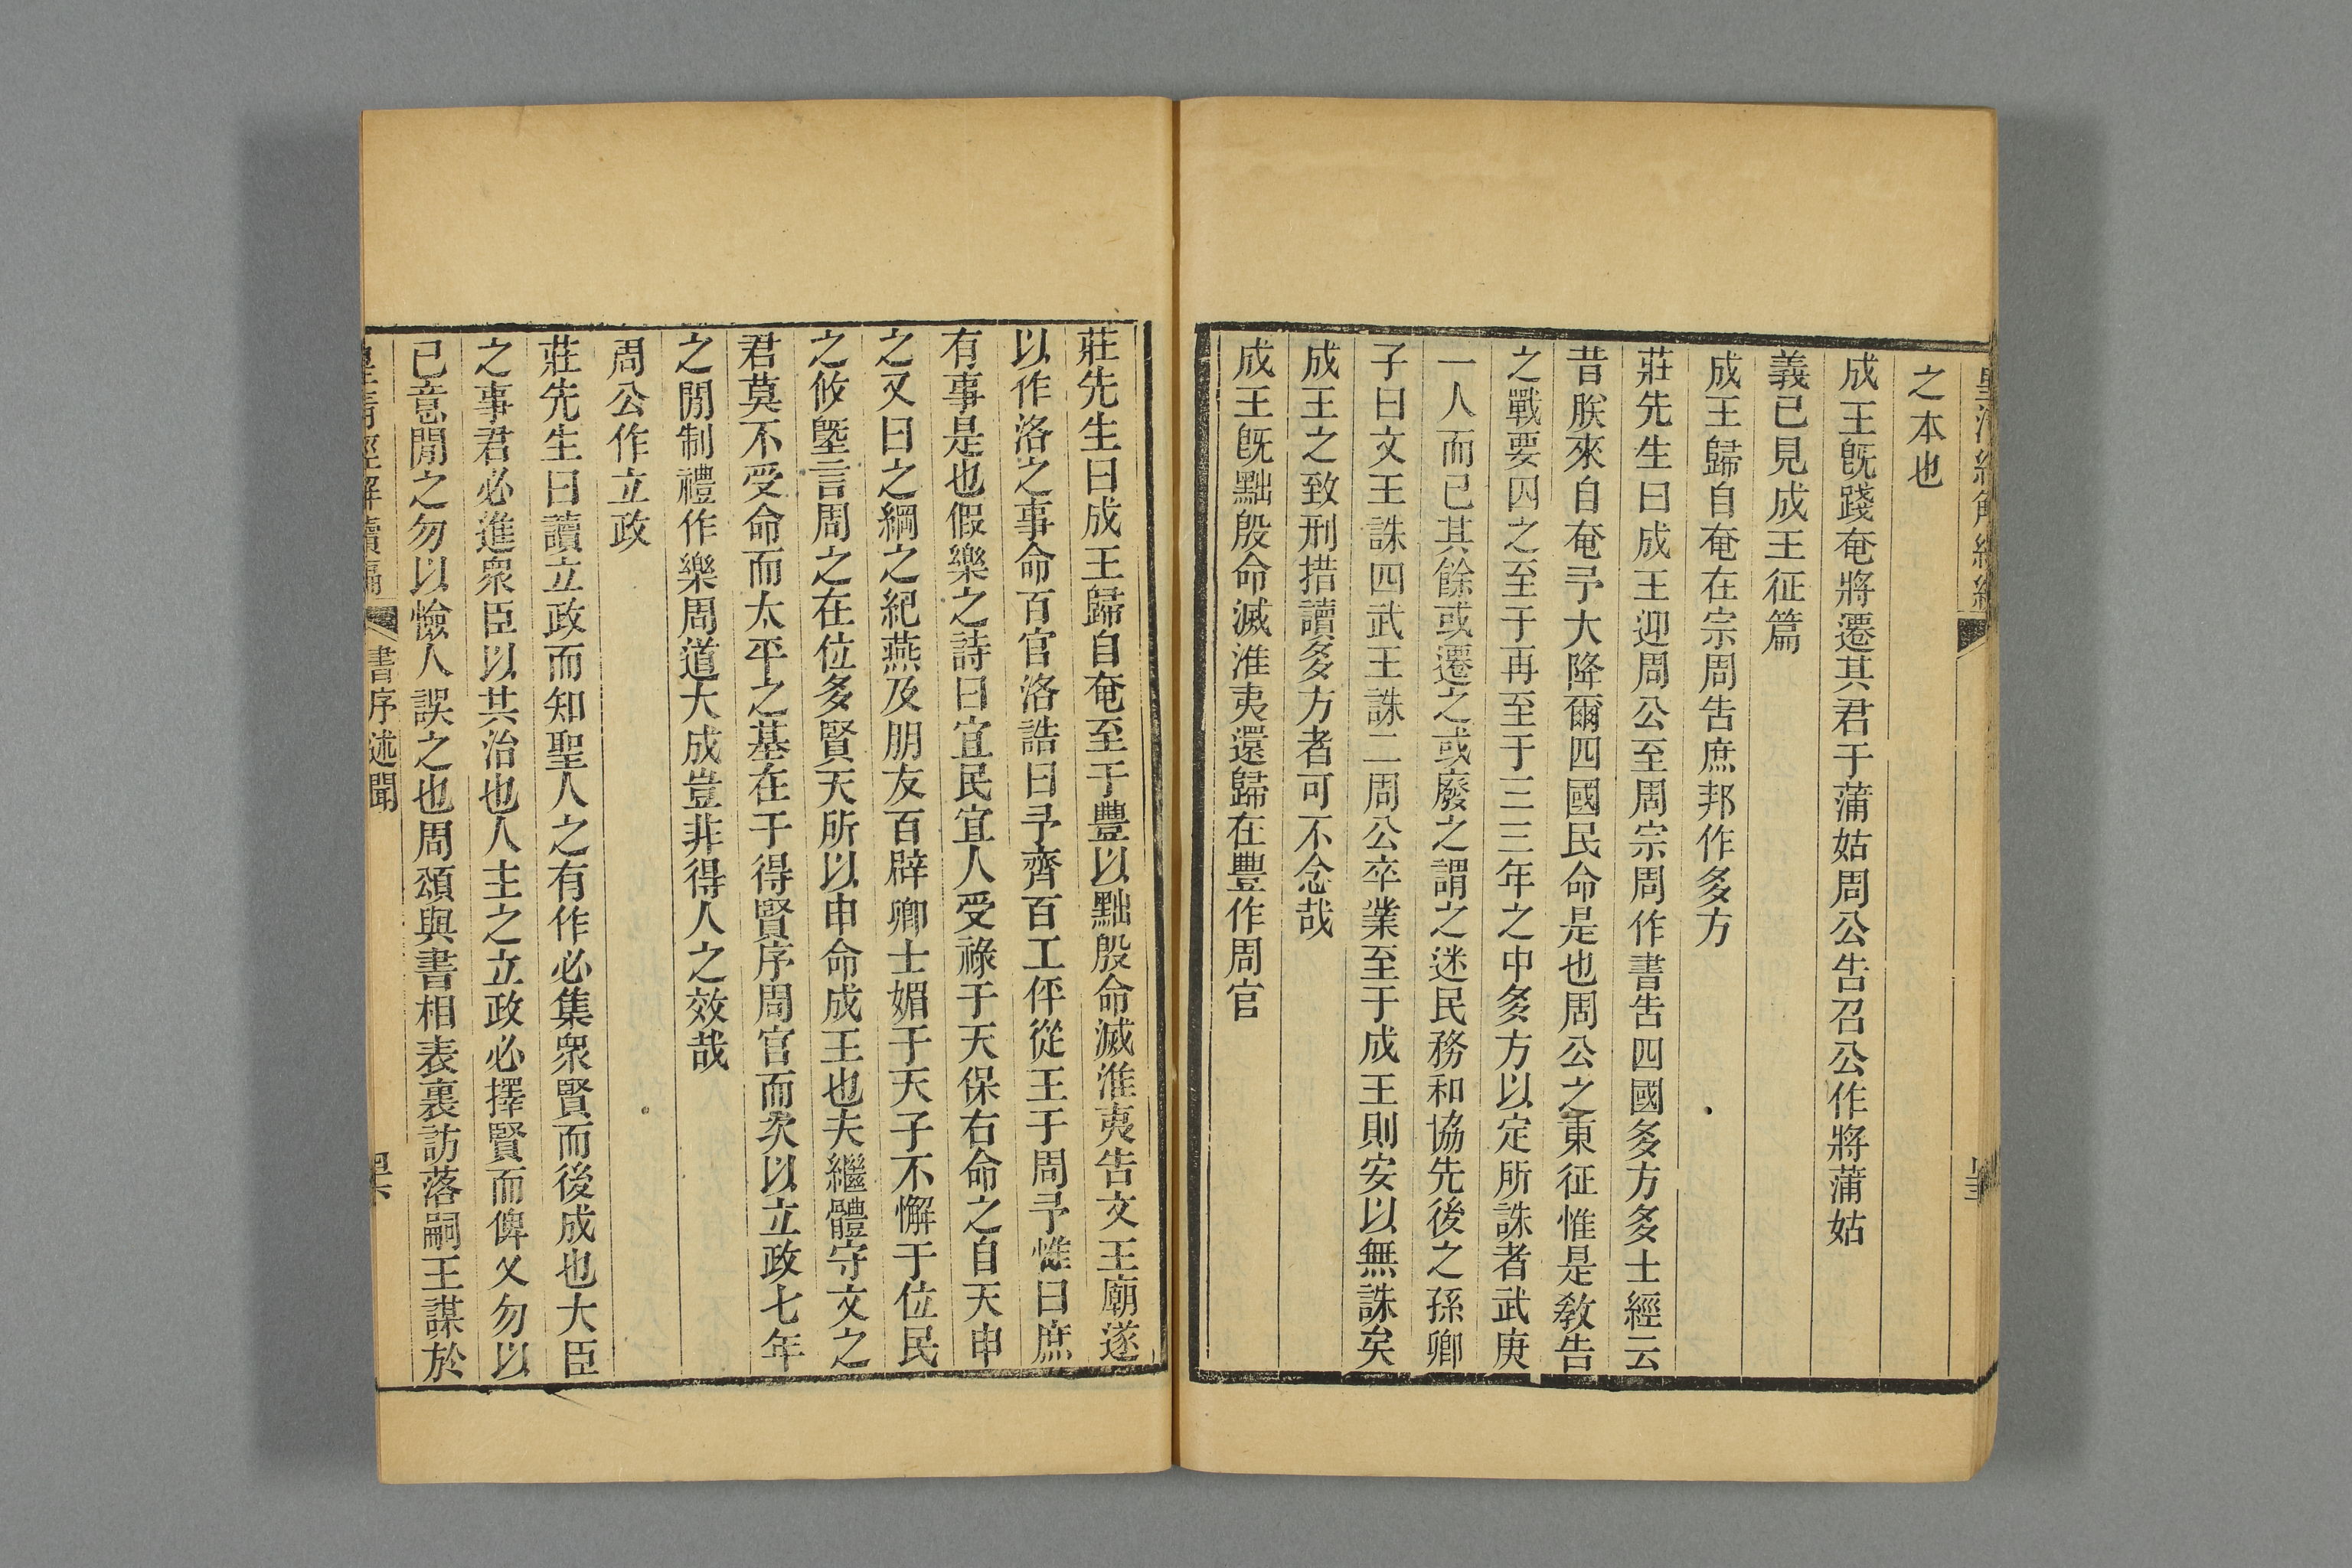 之本也
成王旣踐奄將遷其君于蒲姑周公告召公作將蒲姑
義已見成王征篇
成王歸自奄在宗周告庶邦作多方
莊先生曰成王迎周公至周宗周作書告四國多方多士經云
昔朕來自奄予大降爾四國民命是也周公之東征惟是敎告
之戰要囚之至于再至于三三年之中多方以定所誅者武庚
一人而已其餘或遷之或廢之謂之迷民務和協先後之孫卿
子曰文王誅四武王誅二周公卒業至于成王則安以無誅矣
成王之致刑措讀多方者可不念哉
成王旣黜殷命滅淮夷還歸在豐作周官
莊先生曰成王歸自奄至于豐以黜殷命滅淮夷告文王廟遂
以作洛之事命百官洛誥曰予齊百工伻從王于周予惟曰庶
有事是也假樂之詩曰宜民宜人受祿于天保右命之自天申
之又曰之綱之紀燕及朋友百辟卿士媚于天子不懈于位民
之攸墍言周之在位多賢天所以申命成王也夫繼體守文之
君莫不受命而太平之基在于得賢序周官而次以立政七年
之閒制禮作樂周道大成豈非得人之效哉
周公作立政
莊先生曰讀立政而知聖人之有作必集衆賢而後成也大臣
之事君必進衆臣以共治也人主之立政必擇賢而俾乂勿以
已意閒之勿以憸人誤之也周頌與書相表裏訪落嗣王謀於
皇淸經解續編 書序述聞